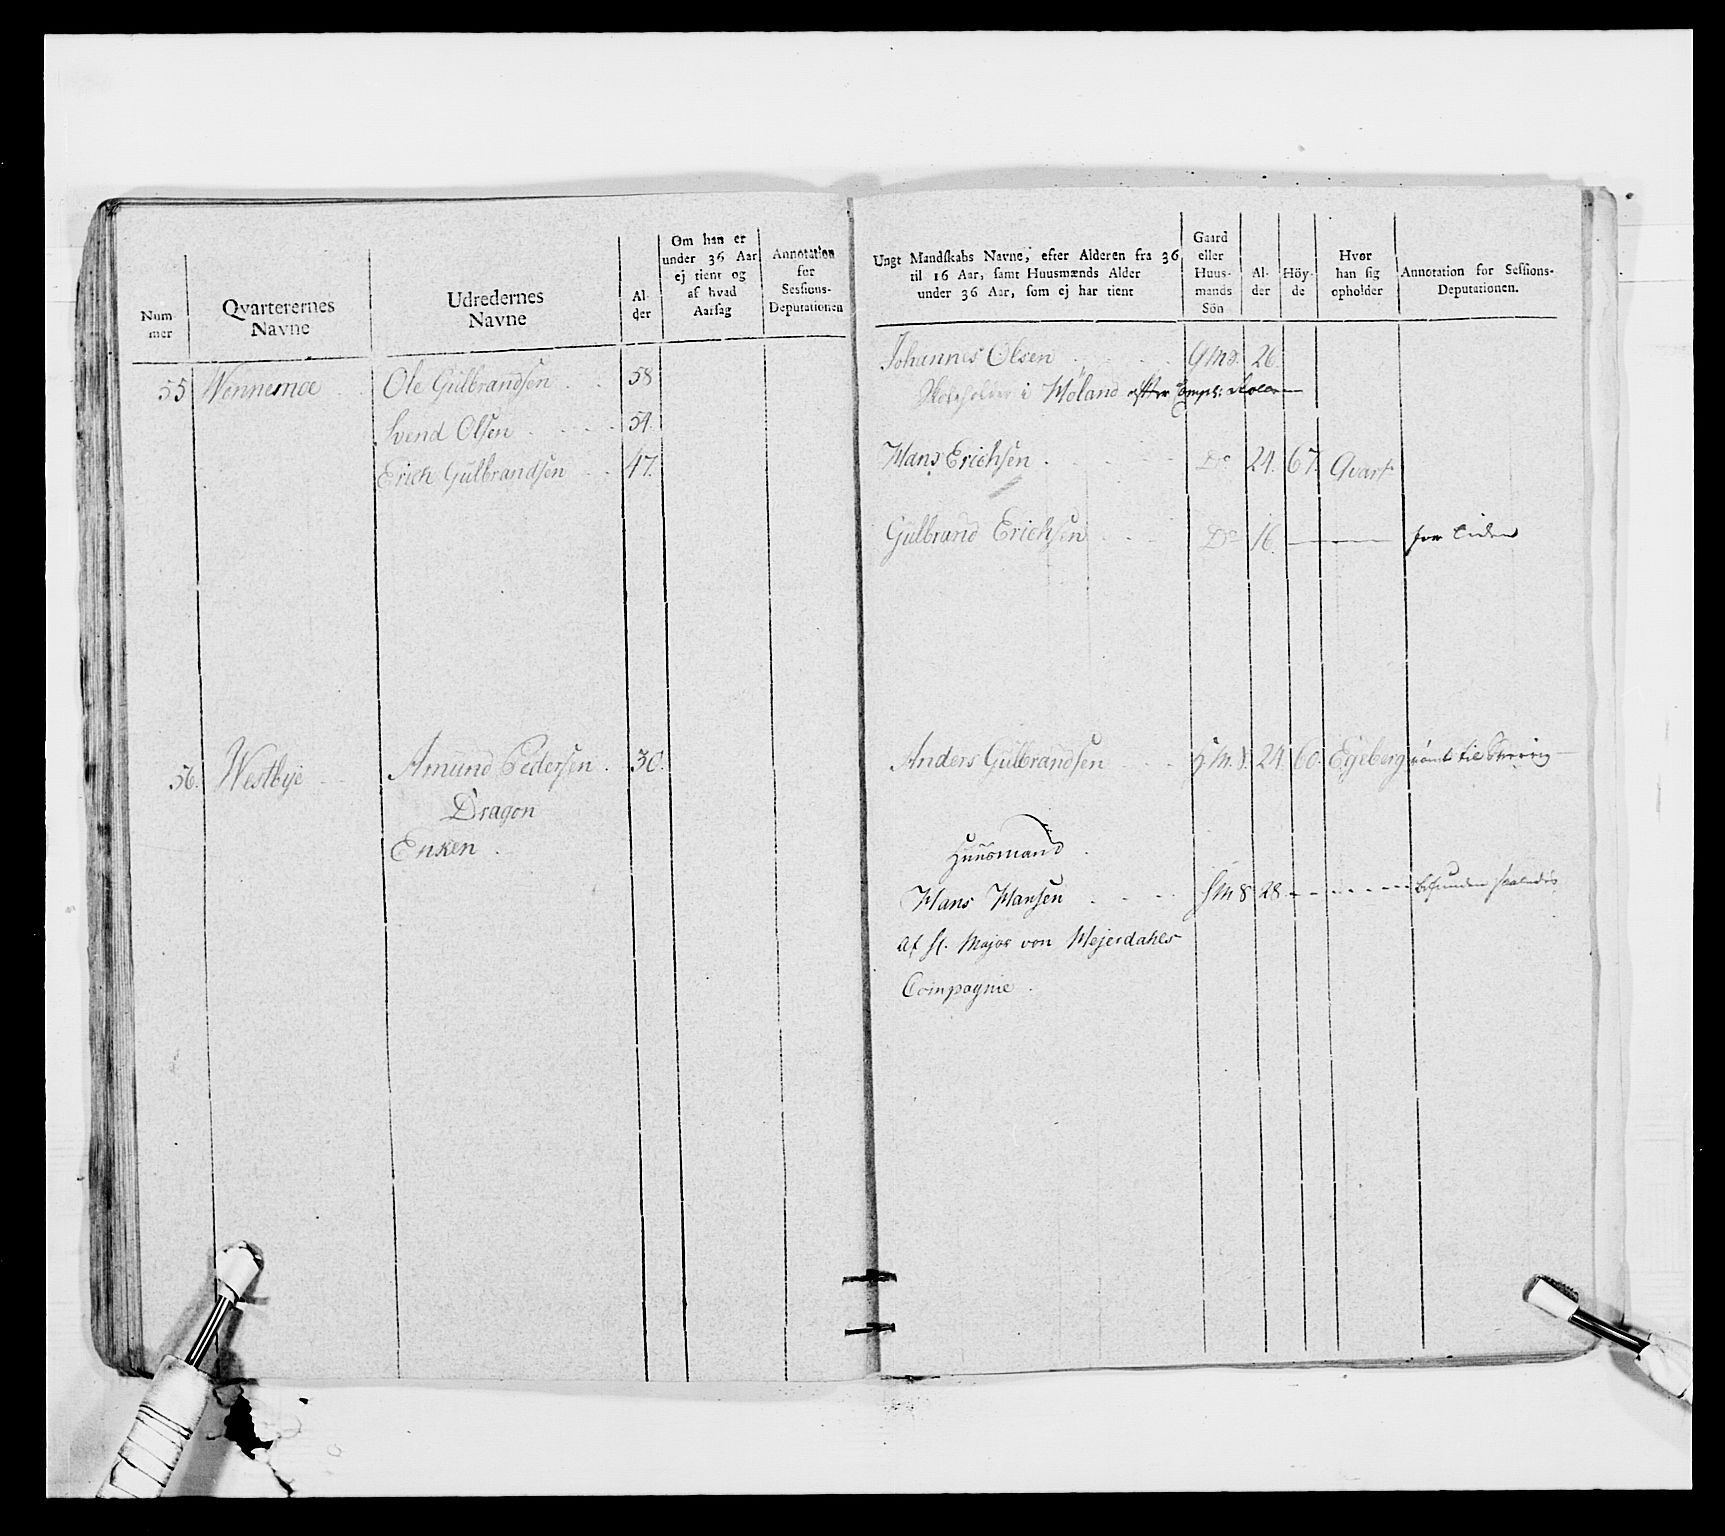 Num
mer
Qvarterernes
Navne
Udredernes
Navne
Al-
der
Om han er
under 36 Aar
ej tient og
af hvad
Aarsag
Annotation
for
Sessions-
Deputationen
55 Nennemoe Ole Gulbrandsen 58
Svend Olsen 54.
Erich Gulbrandsen 47.
56. Westbye Amund Pedersen 30.
Dragon
Enken
Ungt Mandskabs Navne, efter Alderen fra 36
til 16 Aar, samt Huusmænds Alder
under 36 Aar, som ej har tient
Gaard
eller
Huus-
mands
Sön
Al-
der
Höy-
de
Hvor
han sig
opholder
Annotation for Sessions-
Deputationen.
Johannes Olsen G M S. 26.
Skoleholder i Høland
Hans Erichsen Do 24. 67. Qvart
Gulbrand Erichsen Do 16. for liden
Anders Gulbrandsen 24. 60. Egeberg rømt til
Huusmand
Hans Hansen 28 befunden
af H. Major von Mejerdahls
Compagnie